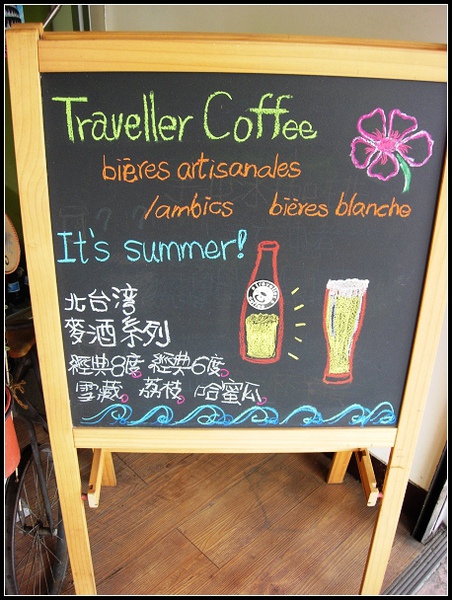 Traveller Coffee
bières artisanales
lambics bières blanche
It's summer!
北台湾
麥酒系列
經典8度。經典6度。
雪藏。荔枝。哈蜜瓜。